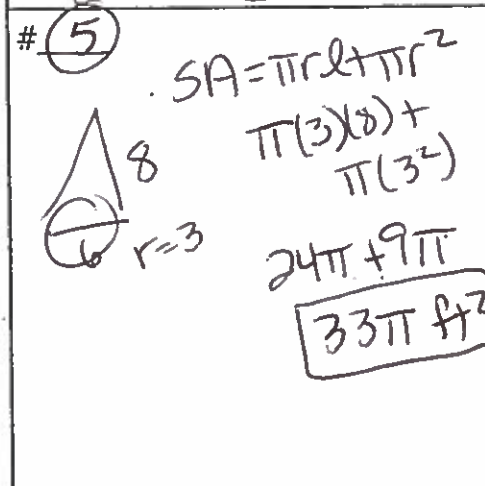 # 5
SA=πrl+πr²
π(3)(8)+
π(3²)
8
6 r=3
24π+9π
33π ft²